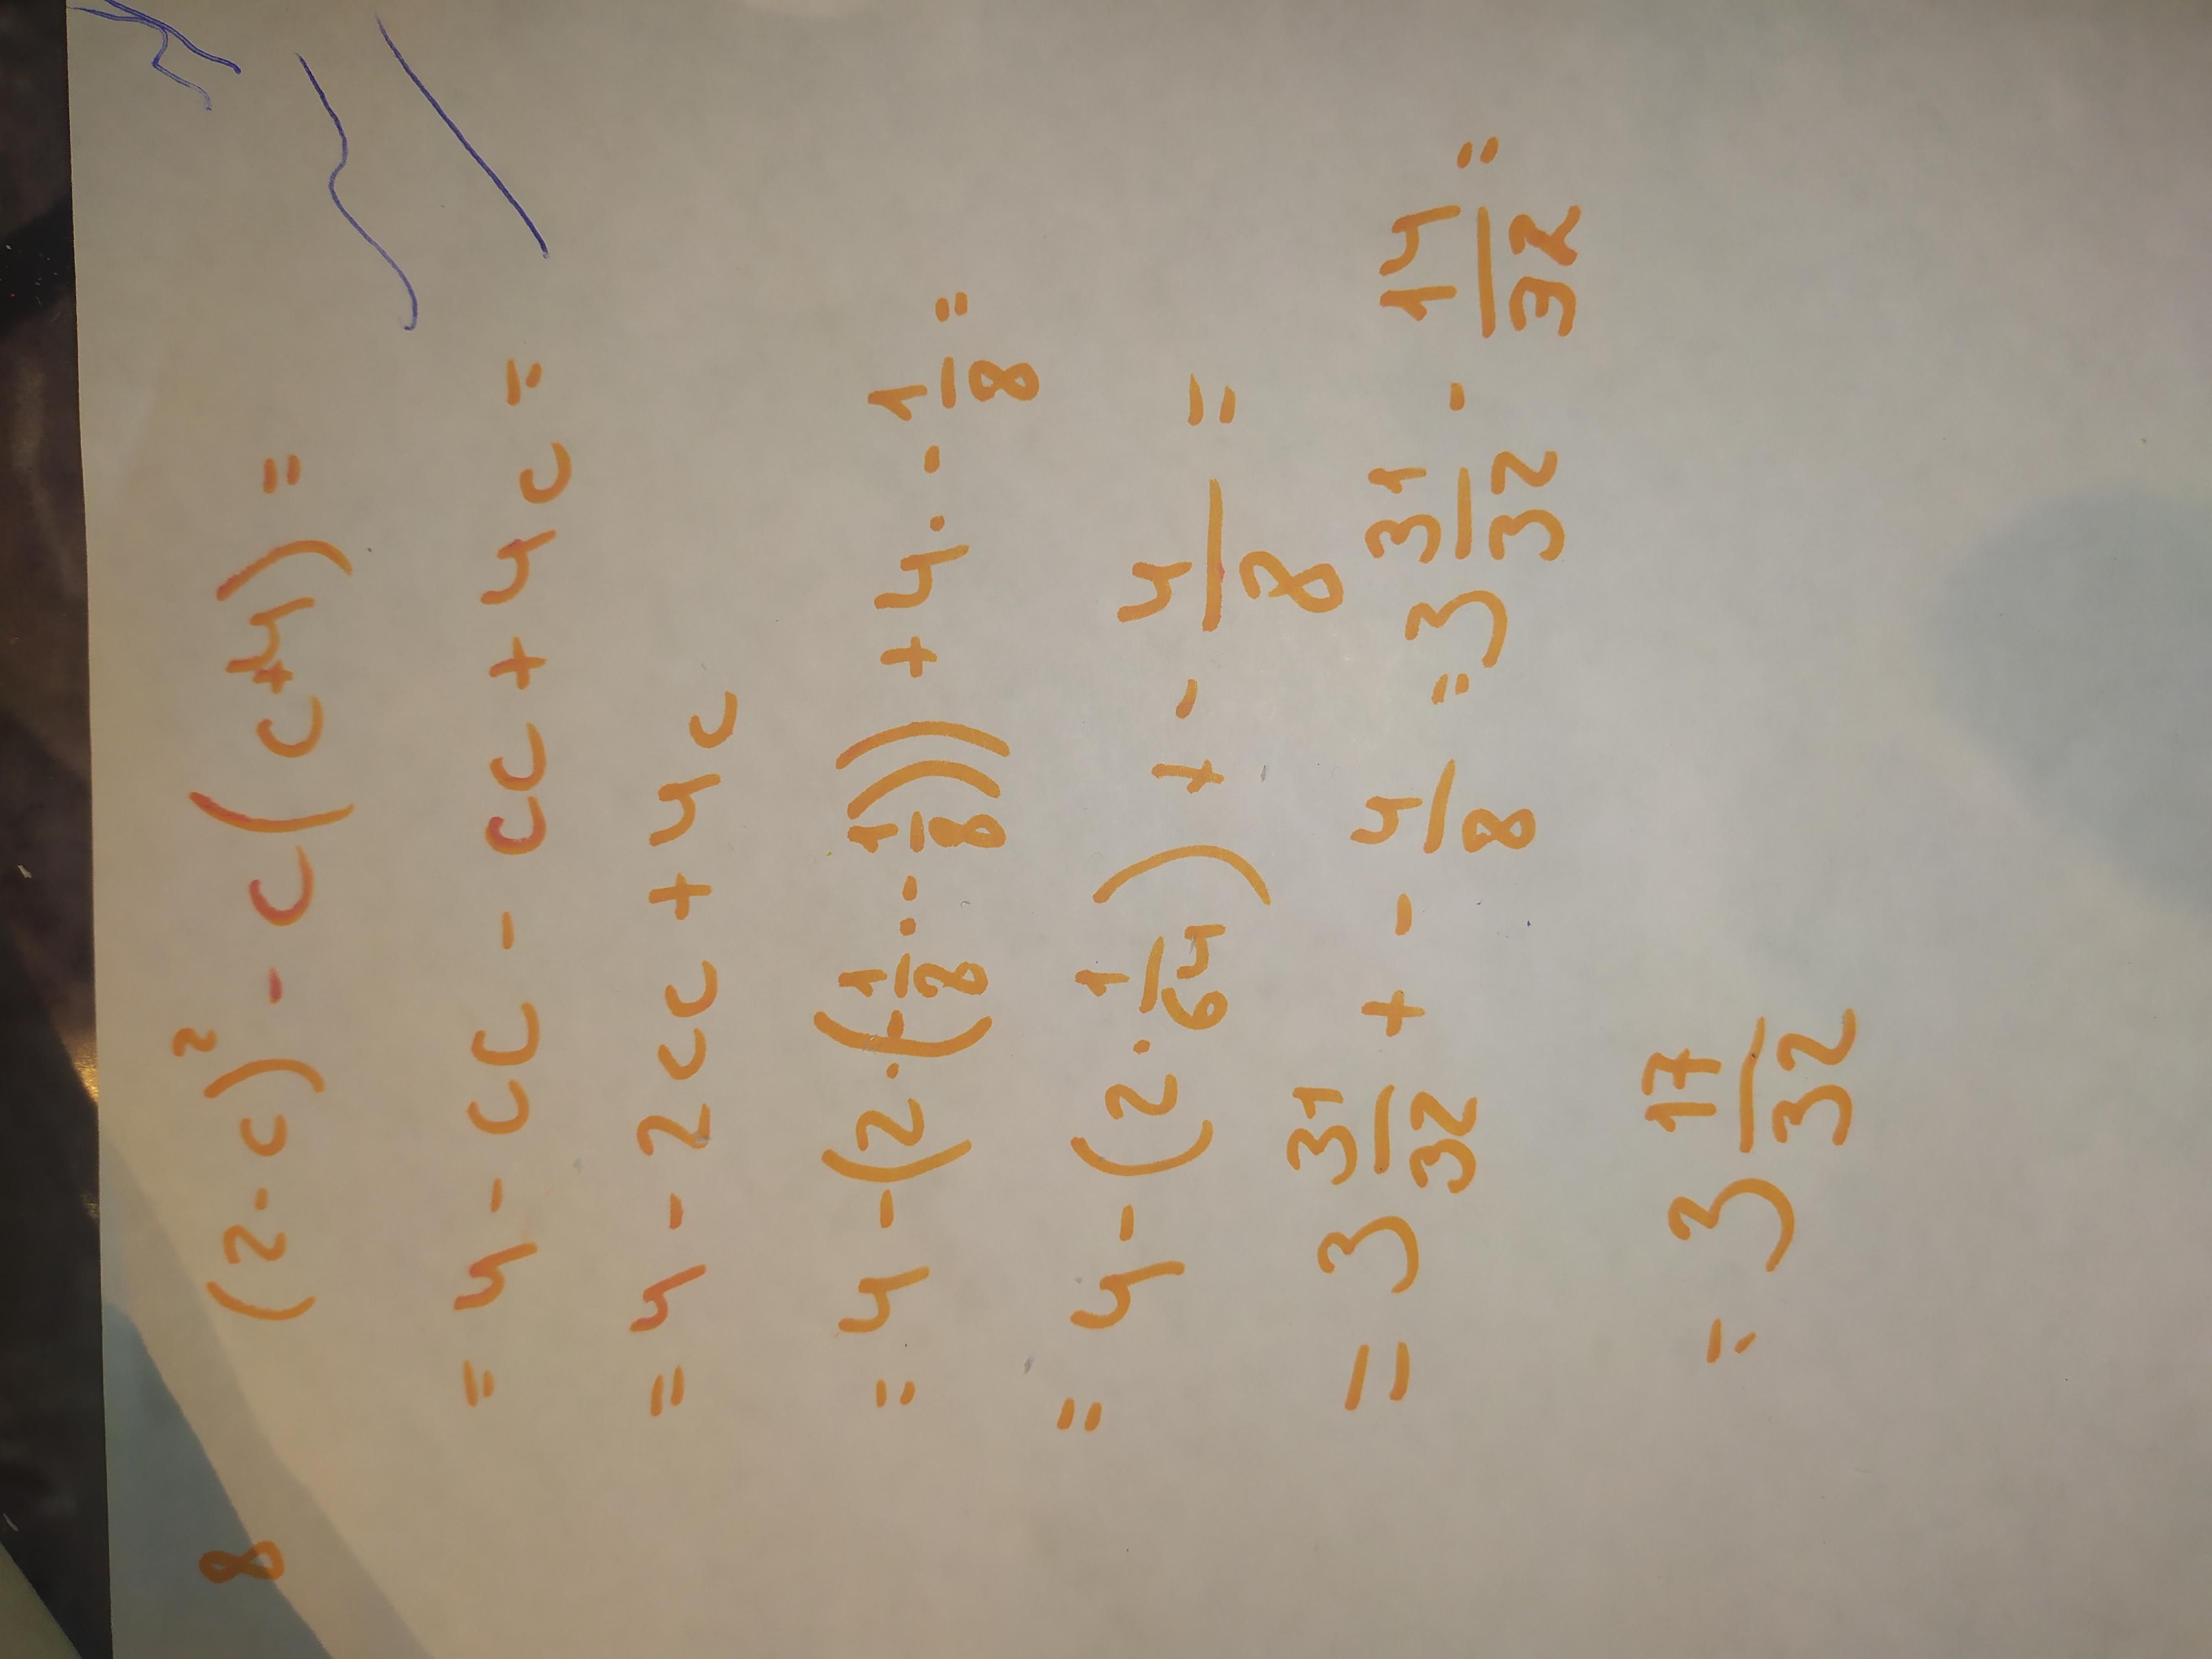 8 (2-c)² - c(c+4) =
= 4 - cc - cc + 4c =
= 4 - 2cc + 4c
= 4 - (2·(-1/8 · -1/8)) + 4 · -1/8 =
= 4 - (2 · 1/64) + - 4/8 =
= 3 31/32 + - 4/8 = 3 31/32 - 14/32 =
= 3 17/32